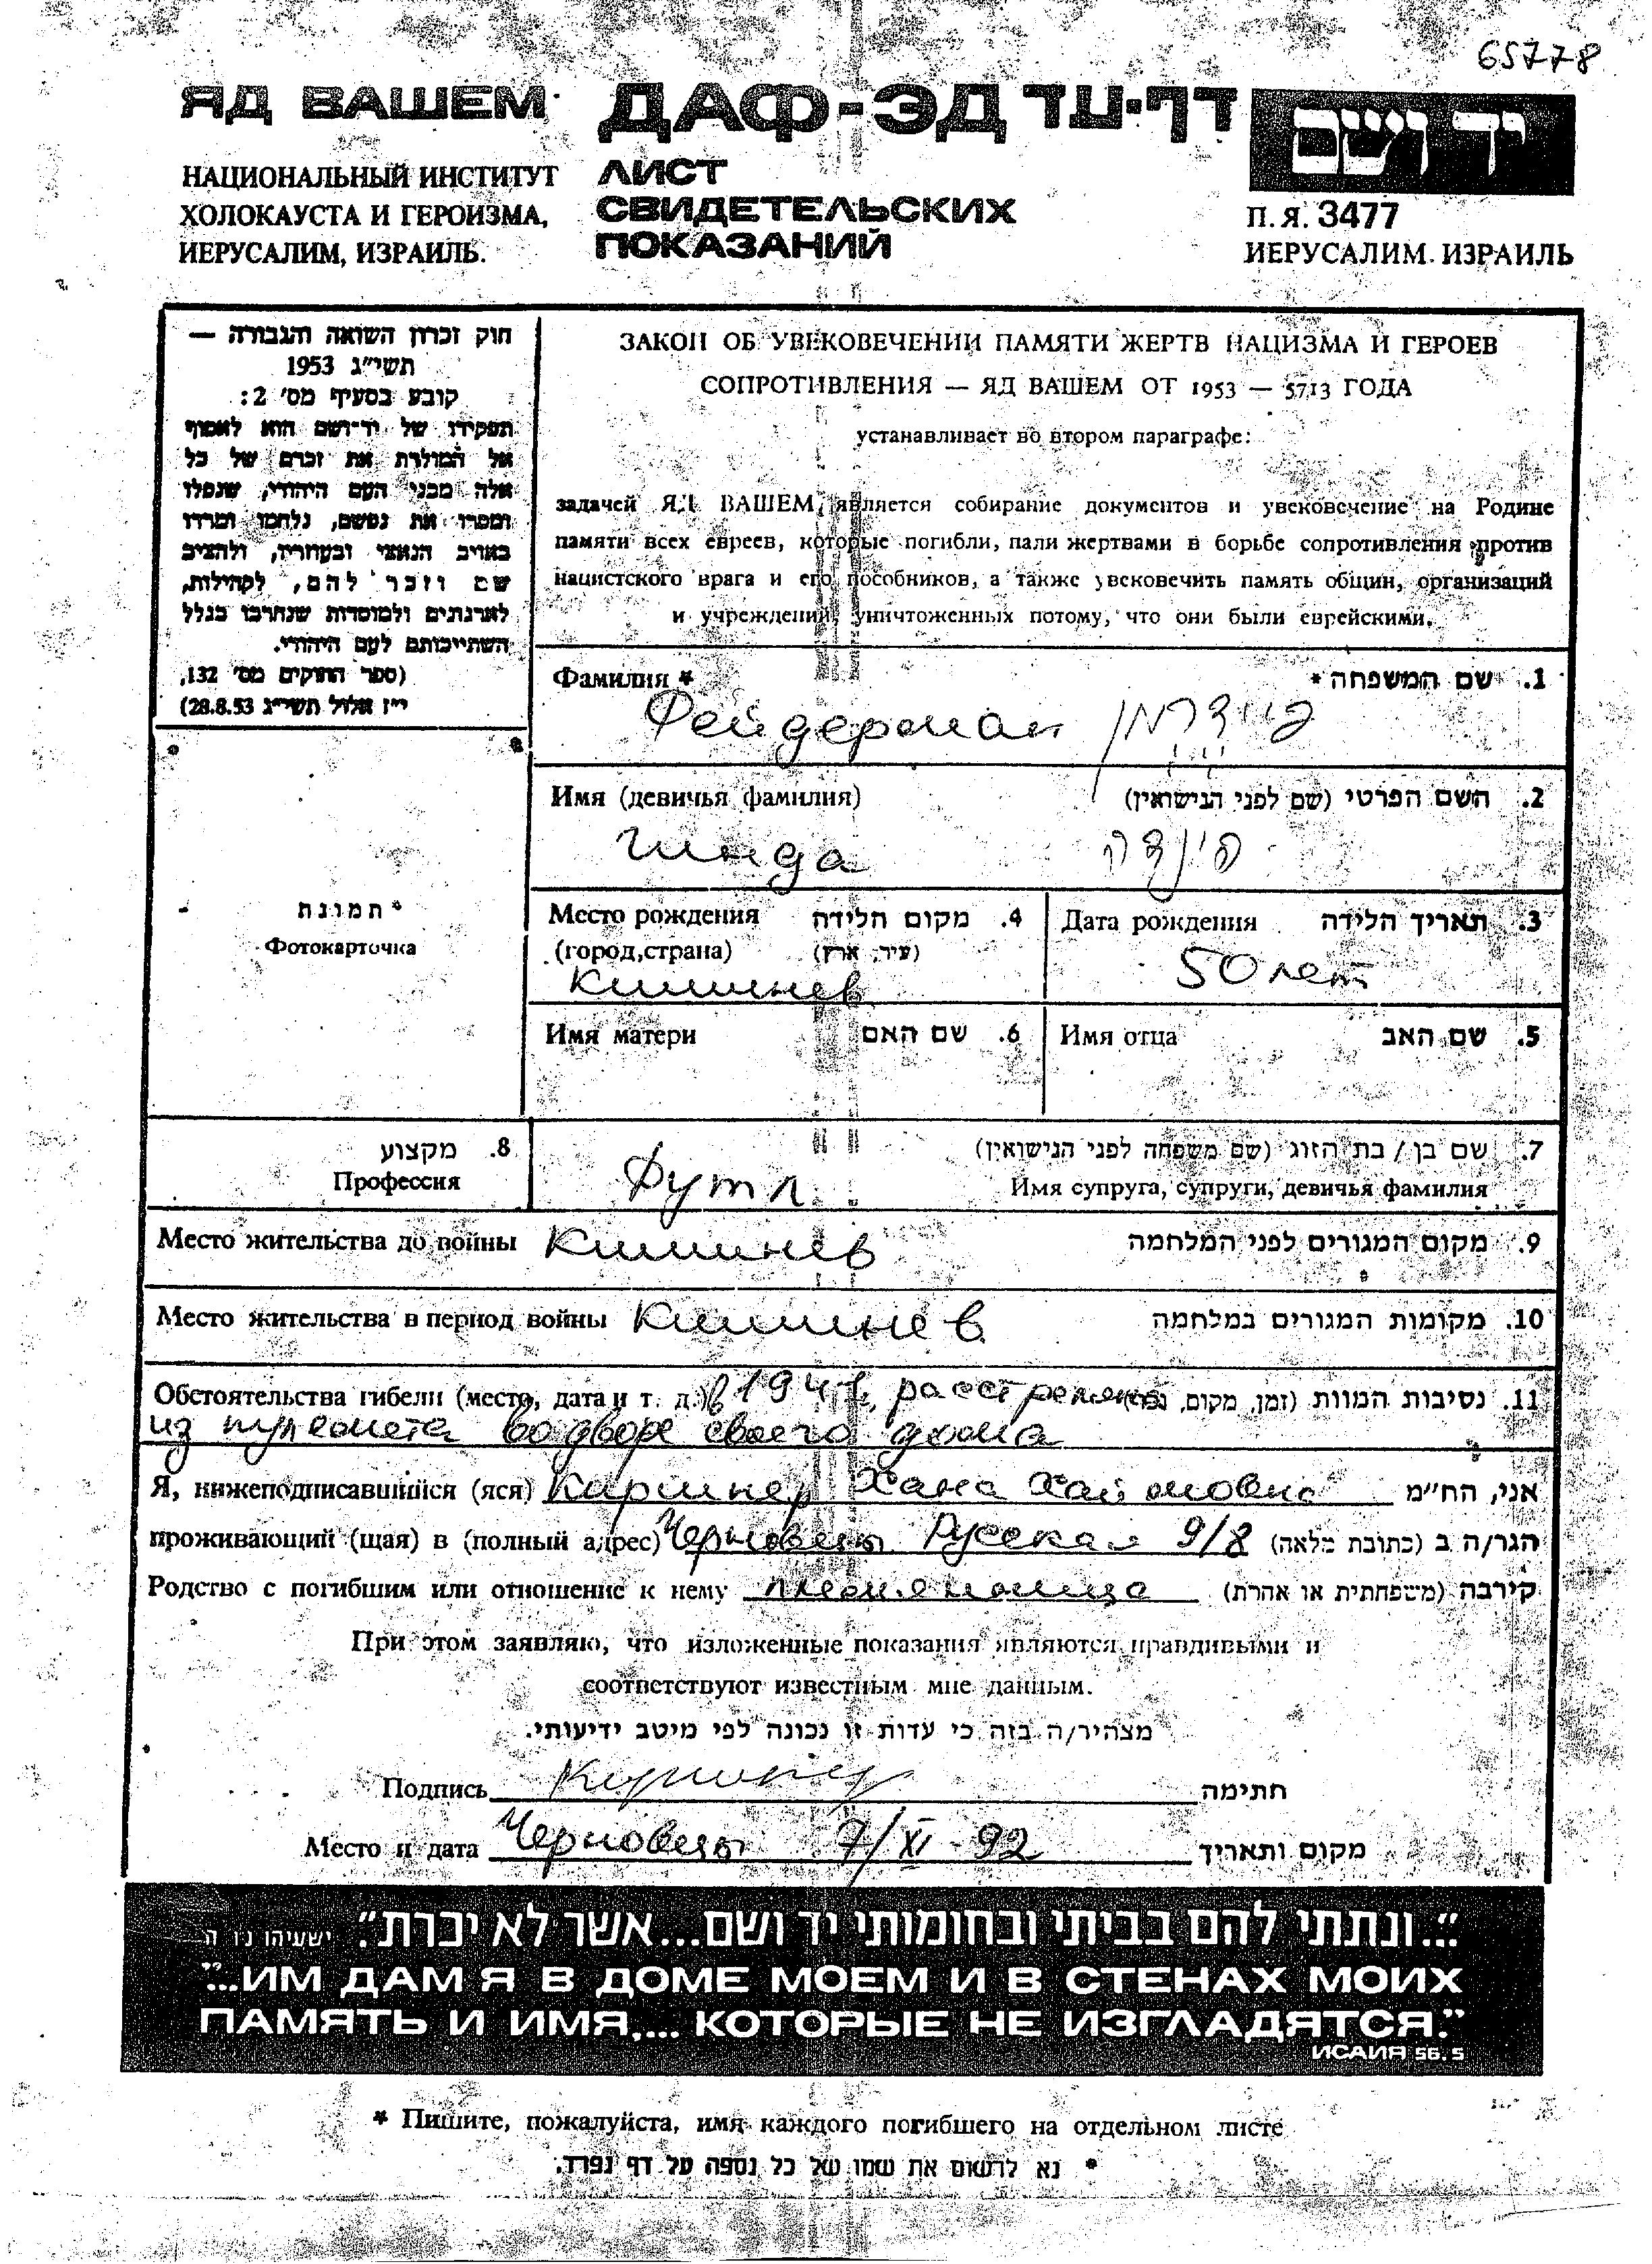 65778
ЯД ВАШЕМ ДАФ-ЭД דף-עד יד ושם
НАЦИОНАЛЬНЫЙ ИНСТИТУТ
ХОЛОКАУСТА И ГЕРОИЗМА,
ИЕРУСАЛИМ, ИЗРАИЛЬ.
ЛИСТ
СВИДЕТЕЛЬСКИХ
ПОКАЗАНИЙ
П.Я. 3477
ИЕРУСАЛИМ. ИЗРАИЛЬ
חוק זכרון השואה והגבורה —
תשי״ג 1953
קובע בסעיף מס׳ 2:
תפקידו של יד־ושם הוא לאסוף
אל המולדת את זכרם של כל
אלה מבני העם היהודי, שנפלו
ומסרו את נפשם, נלחמו ומרדו
באויב הנאצי ובעוזריו, ולהציב
שם וזכר להם, לקהילות,
לארגונים ולמוסדות שנחרבו בגלל
השתייכותם לעם היהודי.
(ספר החוקים מס׳ 132,
י״ז אלול תשי״ג 28.8.53)
ЗАКОН ОБ УВЕКОВЕЧЕНИИ ПАМЯТИ ЖЕРТВ НАЦИЗМА И ГЕРОЕВ
СОПРОТИВЛЕНИЯ — ЯД ВАШЕМ ОТ 1953 — 5713 ГОДА
устанавливает во втором параграфе:
задачей ЯД ВАШЕМ, является собирание документов и увековечение на Родине
памяти всех евреев, которые погибли, пали жертвами в борьбе сопротивления против
нацистского врага и его пособников, а также увековечить память общин, организаций
и учреждений, уничтоженных потому, что они были еврейскими.
Фамилия * 1. שם המשפחה *
Фейдерман פיידרמן
Имя (девичья фамилия) 2. השם הפרטי (שם לפני הנישואין)
Гинда הינדה
* תמונת
Фотокарточка
Место рождения 4. מקום הלידה
(город,страна) (עיר, ארץ)
Кишинев
Дата рождения 3. תאריך הלידה
50 лет
Имя матери 6. שם האם
Имя отца 5. שם האב
8. מקצוע
Профессия
7. שם בן / בת הזוג (שם משפחה לפני הנישואין)
Футл Имя супруга, супруги, девичья фамилия
Место жительства до войны Кишинев 9. מקום המגורים לפני המלחמה
Место жительства в период войны Кишинев 10. מקומות המגורים במלחמה
Обстоятельства гибели (место, дата и т. д.) в 1941, расстреляна 11. נסיבות המוות (זמן, מקום,
из пулемета во дворе своего дома
Я, нижеподписавшийся (яся) Киршнер Хана Хаймовна אני, הח״מ
проживающий (щая) в (полный адрес) Черновцы Русская 9/8 הגר/ה ב (כתובת מלאה)
Родство с погибшим или отношение к нему племянница קירבה (משפחתית או אחרת)
При этом заявляю, что изложенные показания являются правдивыми и
соответствуют известным мне данным.
מצהיר/ה בזה כי עדות זו נכונה לפי מיטב ידיעותי.
Подпись Киршнер חתימה
Место и дата Черновцы 7/XI-92 מקום ותאריך
״...ונתתי להם בביתי ובחומותי יד ושם...אשר לא יכרת״. ישעיהו נו ה
"...ИМ ДАМ Я В ДОМЕ МОЕМ И В СТЕНАХ МОИХ
ПАМЯТЬ И ИМЯ.... КОТОРЫЕ НЕ ИЗГЛАДЯТСЯ."
ИСАИЯ 56.5
* Пишите, пожалуйста, имя каждого погибшего на отдельном листе
* נא לרשום את שמו של כל נספה על דף נפרד.